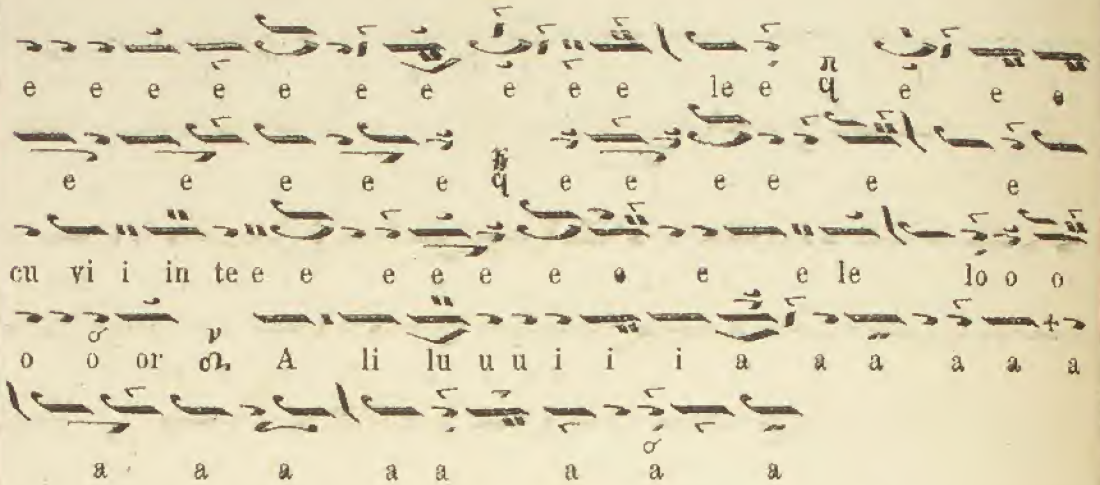 e e e e e e e e e e le e π q e e e
e e e e e π q e e e e e e
cu vi i in te e e e e e e e e e le lo o o
o o or ν A li lu u u i i i a a a a a a
a a a a a a a a